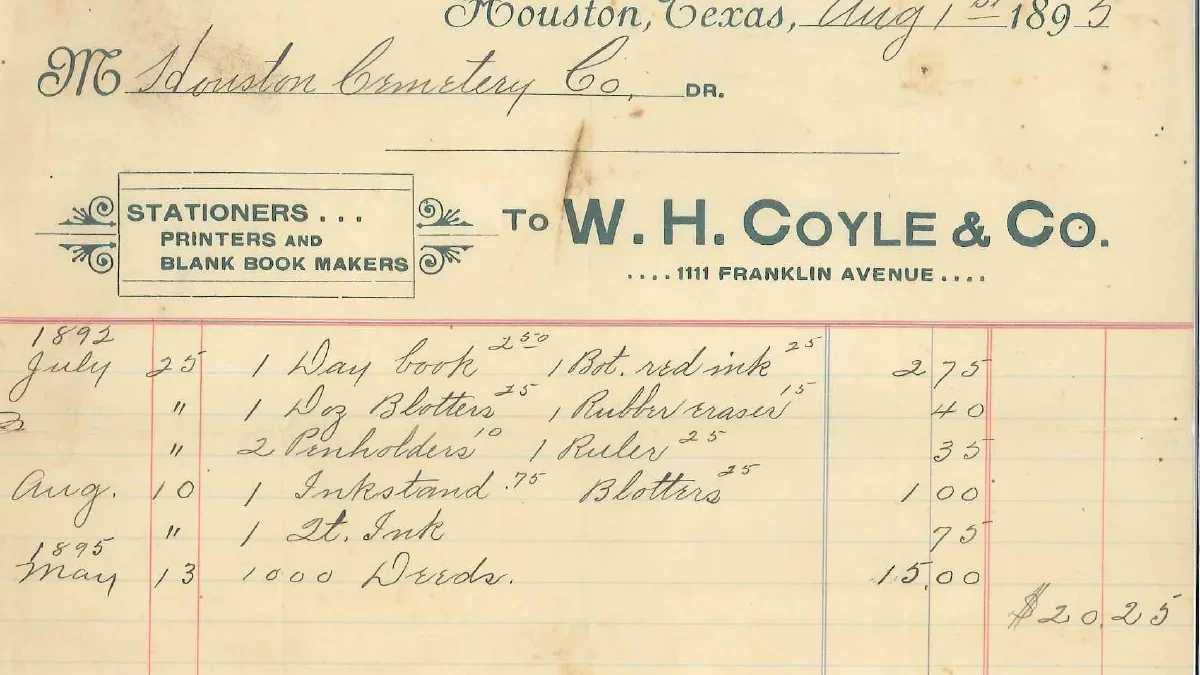 Houston, Texas, Aug 1st 1895
M Houston Cemetery Co. DR.
STATIONERS...
PRINTERS AND
BLANK BOOK MAKERS
To W. H. COYLE & CO.
....1111 FRANKLIN AVENUE....
1892
July 25 1 Day book 2 50 1 Bot. red ink 25 2 75
" 1 Doz Blotters 25 1 Rubber eraser 15 40
" 2 Penholders 10 1 Ruler 25 35
Aug. 10 1 Inkstand .75 Blotters 25 1 00
" 1 Qt. Ink 75
1895
May 13 1000 Deeds. 15.00
$20.25